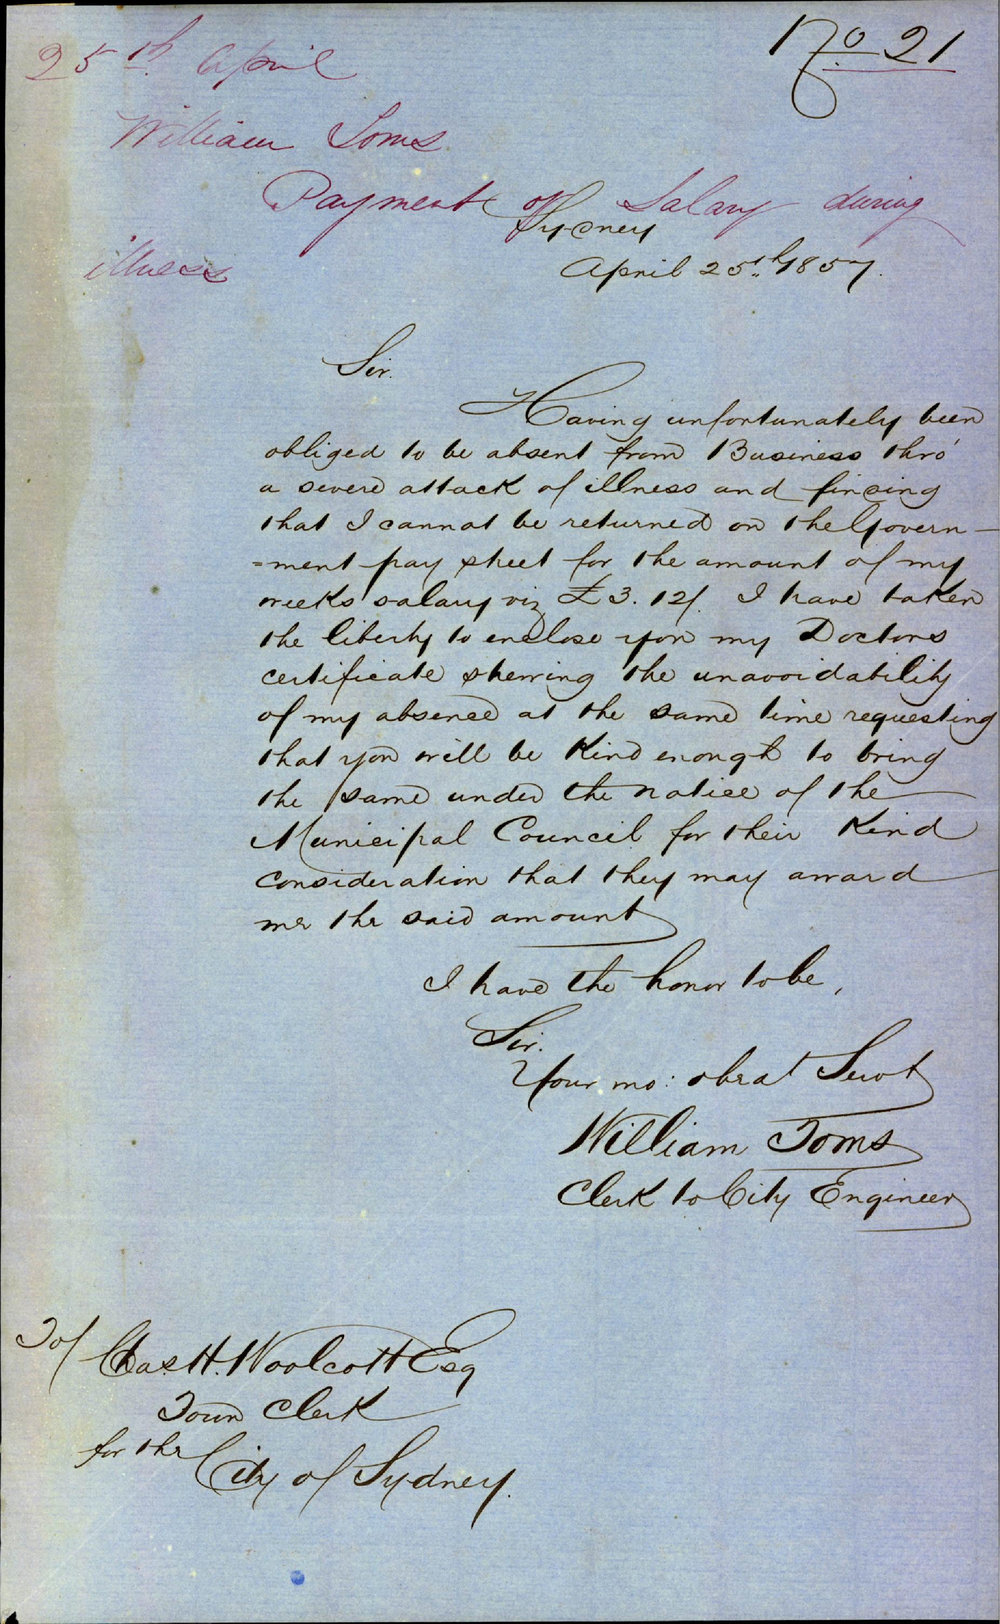 No 21
25th April
William Toms
Payment of Salary during
illness
Sydney
April 25th, 1857.
Sir.
Having unfortunately been
obliged to be absent from Business thro'
a severe attack of illness and finding
that I cannot be returned on the Govern-
=ment pay sheet for the amount of my
weeks salary viz £3.12/. I have taken
the liberty to enclose you my Doctors
certificate shewing the unavoidability
of my absence at the same time requesting
that you will be kind enough to bring
the same under the notice of the
Municipal Council for their kind
consideration that they may award
me the said amount
I have the honor to be,
Sir.
Your mo: obedt Servt
William Toms
Clerk to City Engineer
To/ Chas. H. Woolcott Esq
Town Clerk
for the City of Sydney.